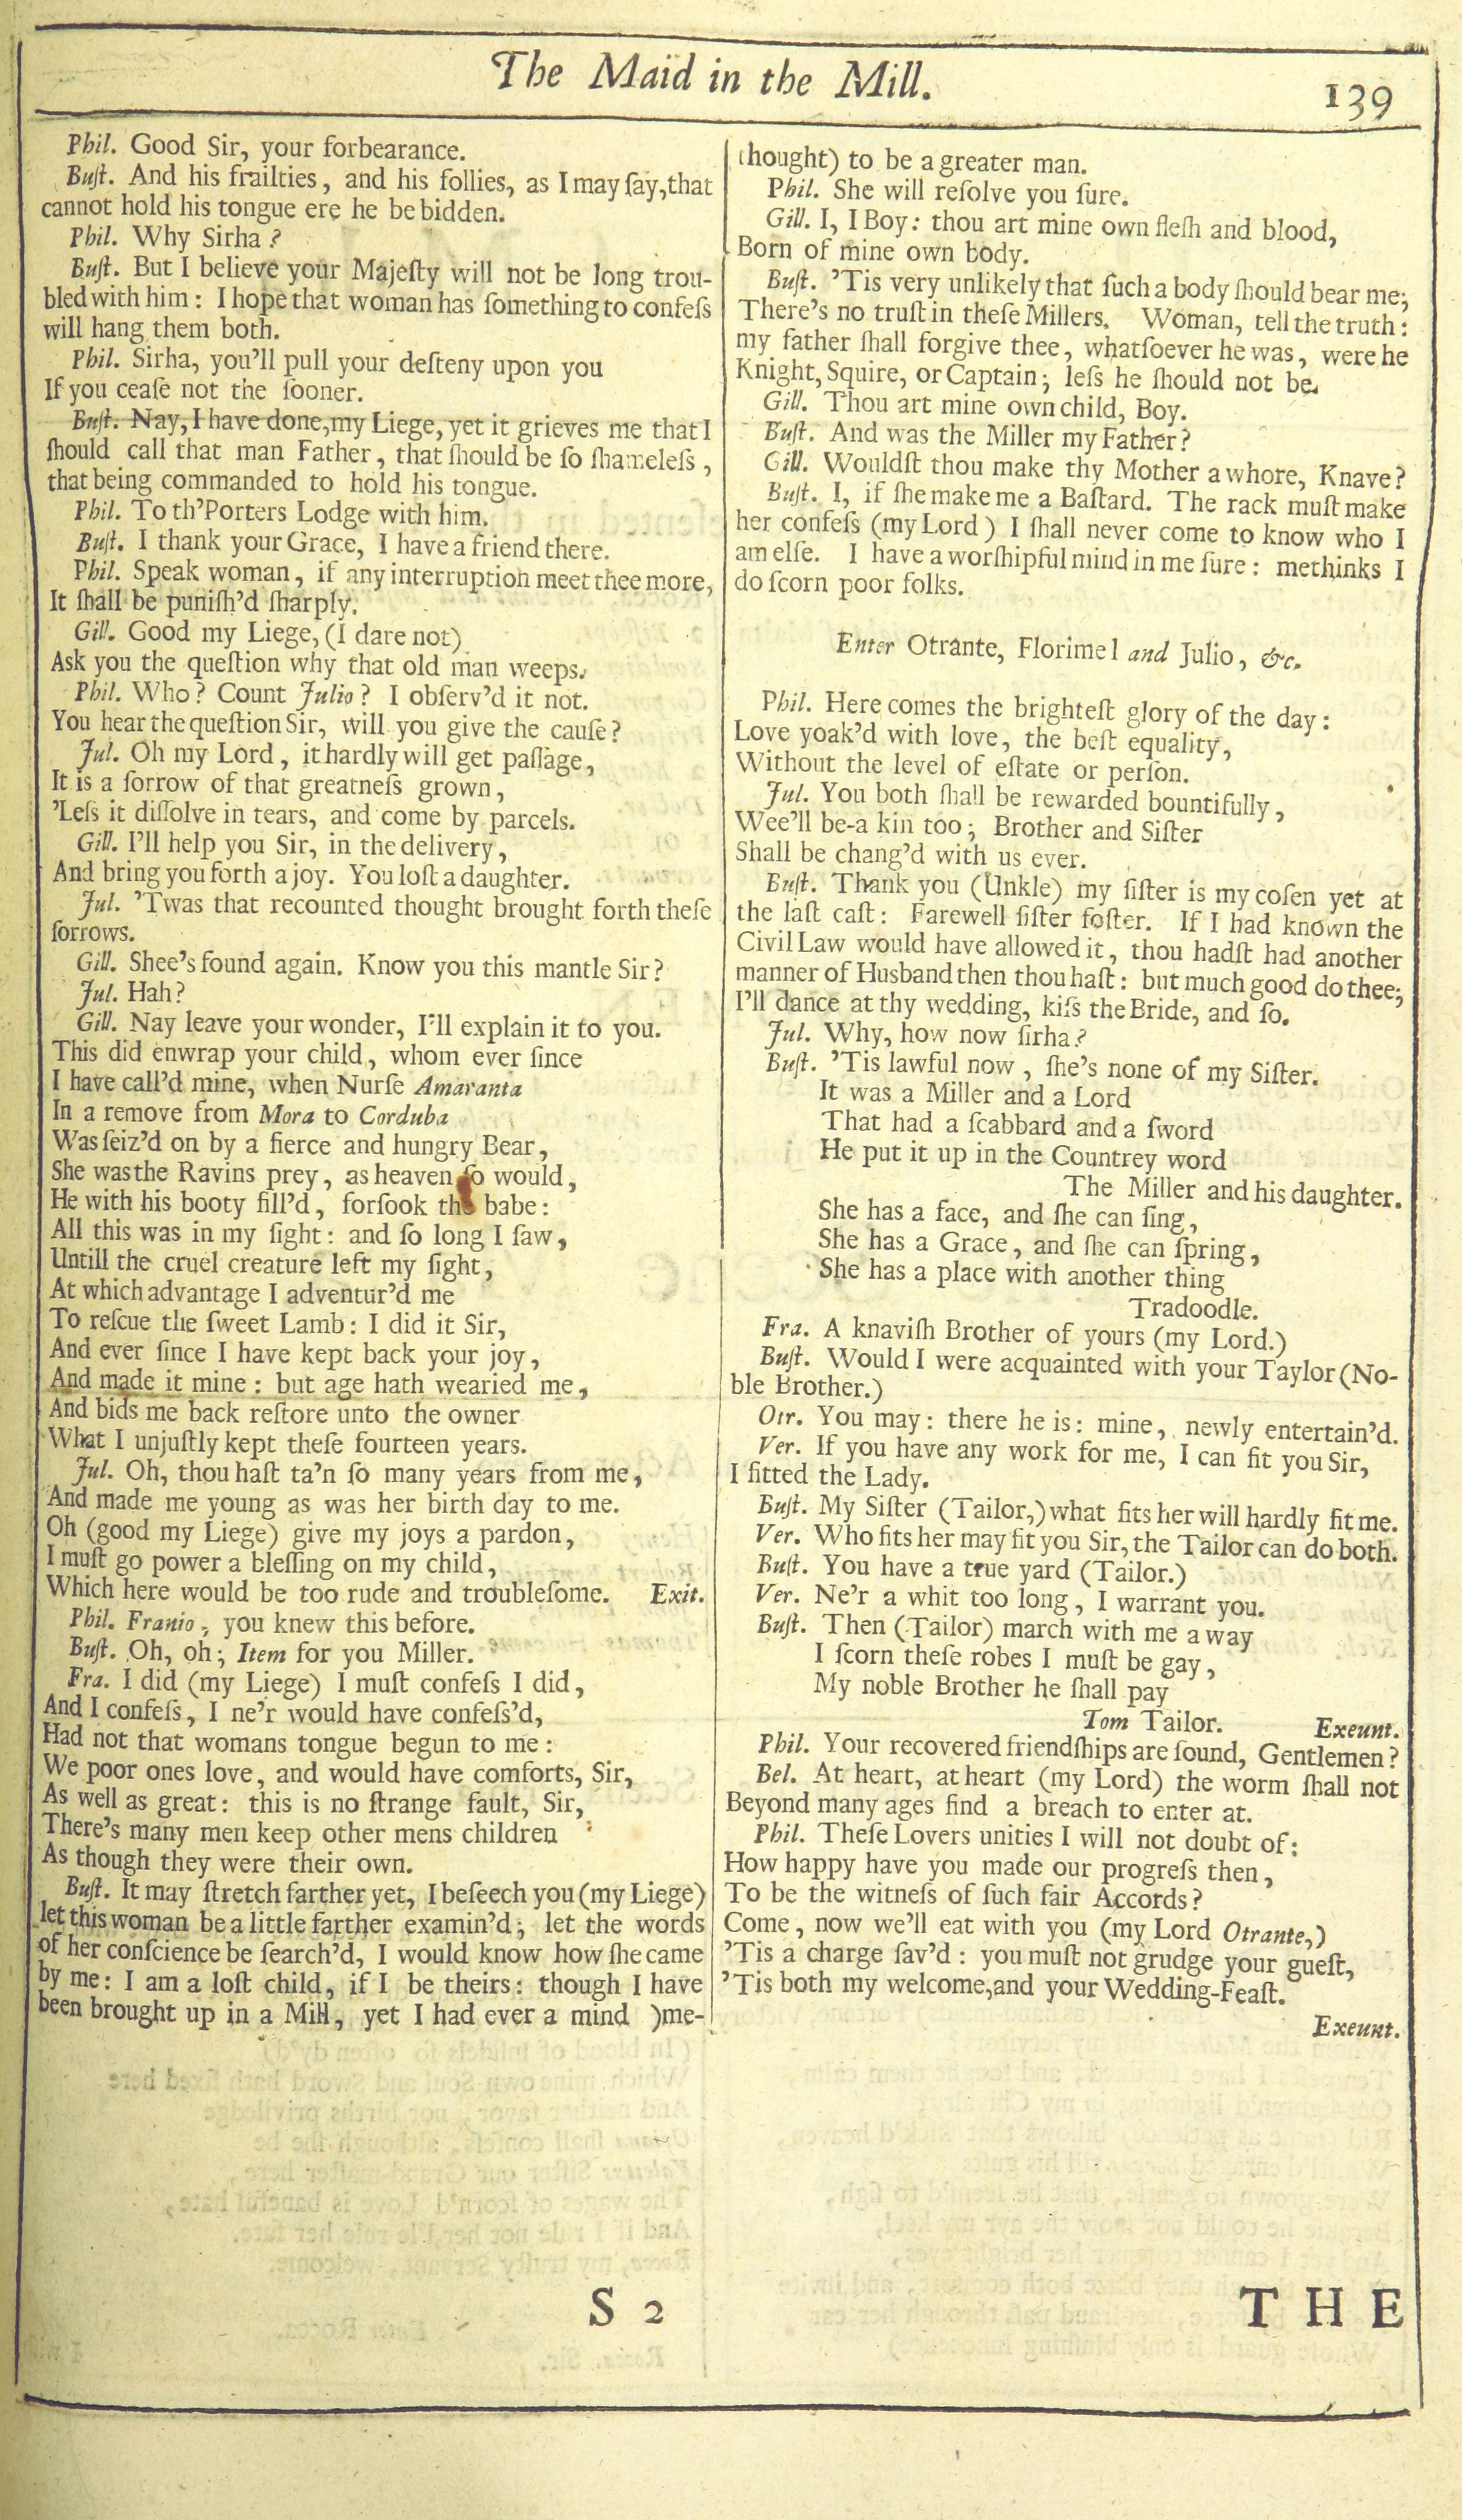 The Maid in the Mill.
139
Phil. Good Sir, your forbearance.
Buſt. And his frailties, and his follies, as I may ſay, that
cannot hold his tongue ere he be bidden.
Phil. Why Sirha?
Buſt. But I believe your Majeſty will not be long trou-
bled with him: I hope that woman has ſomething to confeſs
will hang them both.
Phil. Sirha, you'll pull your deſteny upon you
If you ceaſe not the ſooner.
Buſt. Nay, I have done, my Liege, yet it grieves me that I
ſhould call that man Father, that ſhould be ſo ſhameleſs,
that being commanded to hold his tongue.
Phil. To th'Porters Lodge with him.
Buſt. I thank your Grace, I have a friend there.
Phil. Speak woman, if any interruption meet thee more,
It ſhall be puniſh'd ſharply.
Gill. Good my Liege, (I dare not)
Ask you the queſtion why that old man weeps.
Phil. Who? Count Julio? I obſerv'd it not.
You hear the queſtion Sir, will you give the cauſe?
Jul. Oh my Lord, it hardly will get paſſage,
It is a ſorrow of that greatneſs grown,
'Leſs it diſſolve in tears, and come by parcels.
Gill. I'll help you Sir, in the delivery,
And bring you forth a joy. You loſt a daughter.
Jul. 'Twas that recounted thought brought forth theſe
ſorrows.
Gill. Shee's found again. Know you this mantle Sir?
Jul. Hah?
Gill. Nay leave your wonder, I'll explain it to you.
This did enwrap your child, whom ever ſince
I have call'd mine, when Nurſe Amaranta
In a remove from Mora to Corduba
Was ſeiz'd on by a fierce and hungry Bear,
She was the Ravins prey, as heaven ſo would,
He with his booty fill'd, forſook the babe:
All this was in my ſight: and ſo long I ſaw,
Untill the cruel creature left my ſight,
At which advantage I adventur'd me
To reſcue the ſweet Lamb: I did it Sir,
And ever ſince I have kept back your joy,
And made it mine: but age hath wearied me,
And bids me back reſtore unto the owner
What I unjuſtly kept theſe fourteen years.
Jul. Oh, thou haſt ta'n ſo many years from me,
And made me young as was her birth day to me.
Oh (good my Liege) give my joys a pardon,
I muſt go power a bleſſing on my child,
Which here would be too rude and troubleſome. Exit.
Phil. Franio, you knew this before.
Buſt. Oh, oh; Item for you Miller.
Fra. I did (my Liege) I muſt confeſs I did,
And I confeſs, I ne'r would have confeſs'd,
Had not that womans tongue begun to me:
We poor ones love, and would have comforts, Sir,
As well as great: this is no ſtrange fault, Sir,
There's many men keep other mens children
As though they were their own.
Buſt. It may ſtretch farther yet, I beſeech you (my Liege)
let this woman be a little farther examin'd; let the words
of her conſcience be ſearch'd, I would know how ſhe came
by me: I am a loſt child, if I be theirs: though I have
been brought up in a Mill, yet I had ever a mind )me-
thought) to be a greater man.
Phil. She will reſolve you ſure.
Gill. I, I Boy: thou art mine own fleſh and blood,
Born of mine own body.
Buſt. 'Tis very unlikely that ſuch a body ſhould bear me;
There's no truſt in theſe Millers. Woman, tell the truth:
my father ſhall forgive thee, whatſoever he was, were he
Knight, Squire, or Captain; leſs he ſhould not be.
Gill. Thou art mine own child, Boy.
Buſt. And was the Miller my Father?
Gill. Wouldſt thou make thy Mother a whore, Knave?
Buſt. I, if ſhe make me a Baſtard. The rack muſt make
her confeſs (my Lord) I ſhall never come to know who I
am elſe. I have a worſhipful mind in me ſure: methinks I
do ſcorn poor folks.
Enter Otrante, Florimel and Julio, &c.
Phil. Here comes the brighteſt glory of the day:
Love yoak'd with love, the beſt equality,
Without the level of eſtate or perſon.
Jul. You both ſhall be rewarded bountifully,
Wee'll be-a kin too; Brother and Siſter
Shall be chang'd with us ever.
Buſt. Thank you (Unkle) my ſiſter is my coſen yet at
the laſt caſt: Farewell ſiſter foſter. If I had known the
Civil Law would have allowed it, thou hadſt had another
manner of Husband then thou haſt: but much good do thee;
I'll dance at thy wedding, kiſs the Bride, and ſo.
Jul. Why, how now ſirha?
Buſt. 'Tis lawful now, ſhe's none of my Siſter.
It was a Miller and a Lord
That had a ſcabbard and a ſword
He put it up in the Countrey word
The Miller and his daughter.
She has a face, and ſhe can ſing,
She has a Grace, and ſhe can ſpring,
She has a place with another thing
Tradoodle.
Fra. A knaviſh Brother of yours (my Lord.)
Buſt. Would I were acquainted with your Taylor (No-
ble Brother.)
Otr. You may: there he is: mine, newly entertain'd.
Ver. If you have any work for me, I can fit you Sir,
I fitted the Lady.
Buſt. My Siſter (Tailor,) what fits her will hardly fit me.
Ver. Who fits her may fit you Sir, the Tailor can do both.
Buſt. You have a true yard (Tailor.)
Ver. Ne'r a whit too long, I warrant you.
Buſt. Then (Tailor) march with me away
I ſcorn theſe robes I muſt be gay,
My noble Brother he ſhall pay
Tom Tailor. Exeunt.
Phil. Your recovered friendſhips are ſound, Gentlemen?
Bel. At heart, at heart (my Lord) the worm ſhall not
Beyond many ages find a breach to enter at.
Phil. Theſe Lovers unities I will not doubt of:
How happy have you made our progreſs then,
To be the witneſs of ſuch fair Accords?
Come, now we'll eat with you (my Lord Otrante,)
'Tis a charge ſav'd: you muſt not grudge your gueſt,
'Tis both my welcome, and your Wedding-Feaſt.
Exeunt.
S 2
THE